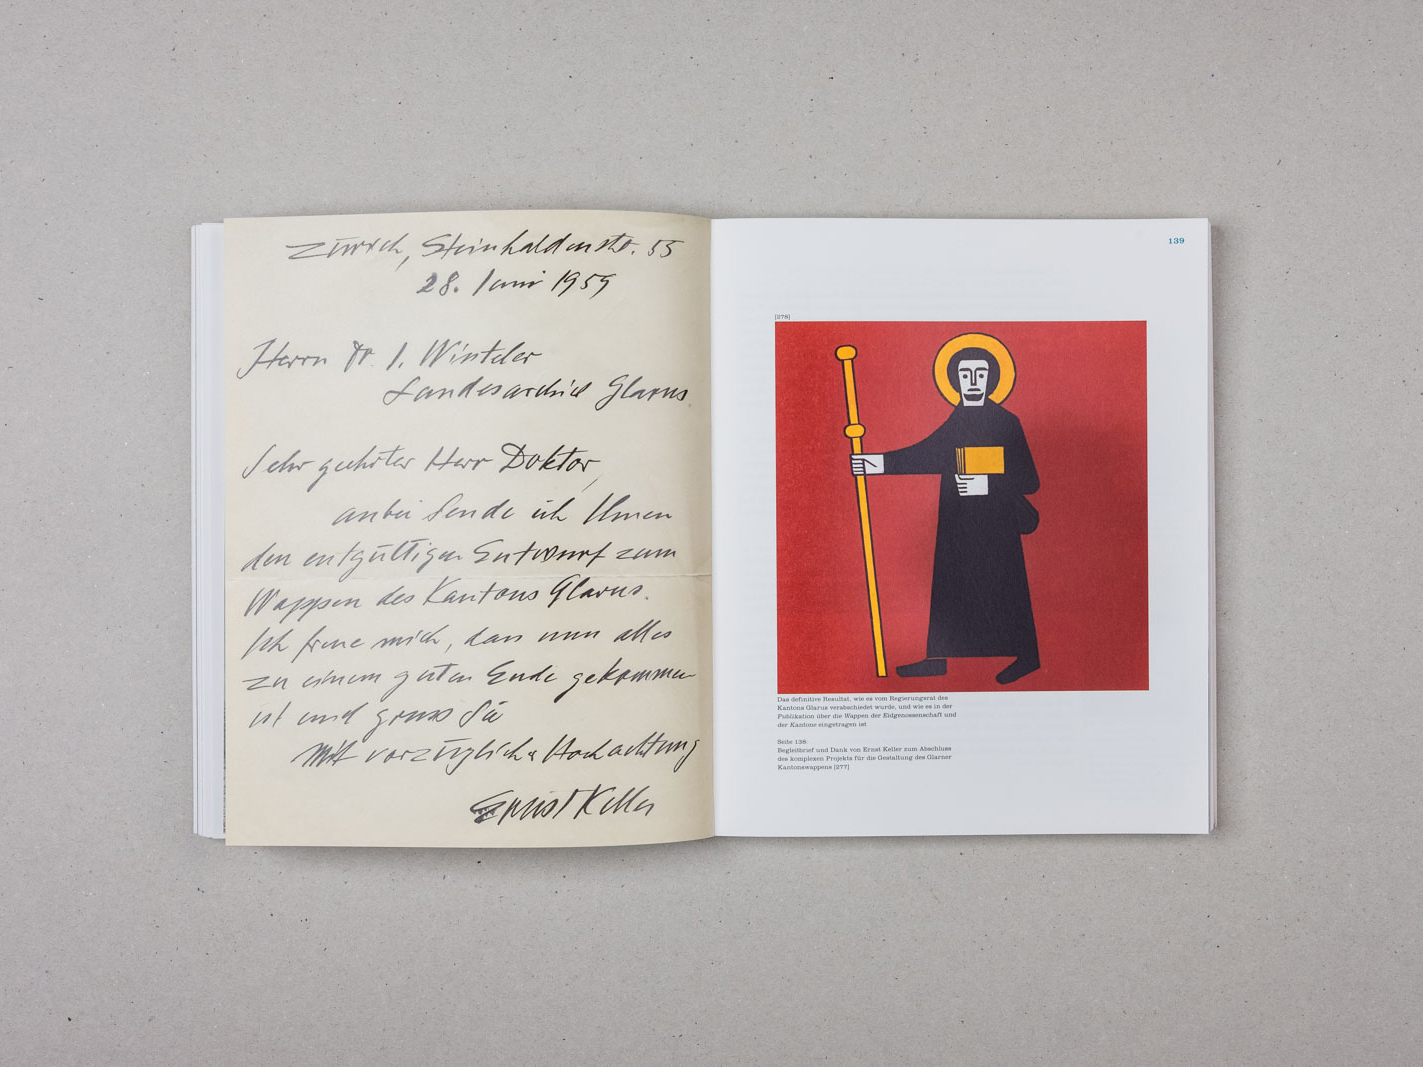 Zürich, Steinhaldenstr. 55
28. Juni 1959
Herrn Dr. J. Winteler
Landesarchiv Glarus.
Sehr geehrter Herr Doktor,
anbei sende ich Ihnen
den entgültigen Entwurf zum
Wappen des Kantons Glarus.
Ich freue mich, dass nun alles
zu einem guten Ende gekommen
ist und grüsse Sie
Mit vorzüglicher Hochachtung
Ernst Keller
139
[278]
Das definitive Resultat, wie es vom Regierungsrat des
Kantons Glarus verabschiedet wurde, und wie es in der
Publikation über die Wappen der Eidgenossenschaft und
der Kantone eingetragen ist
Seite 138:
Begleitbrief und Dank von Ernst Keller zum Abschluss
des komplexen Projekts für die Gestaltung des Glarner
Kantonswappens [277]